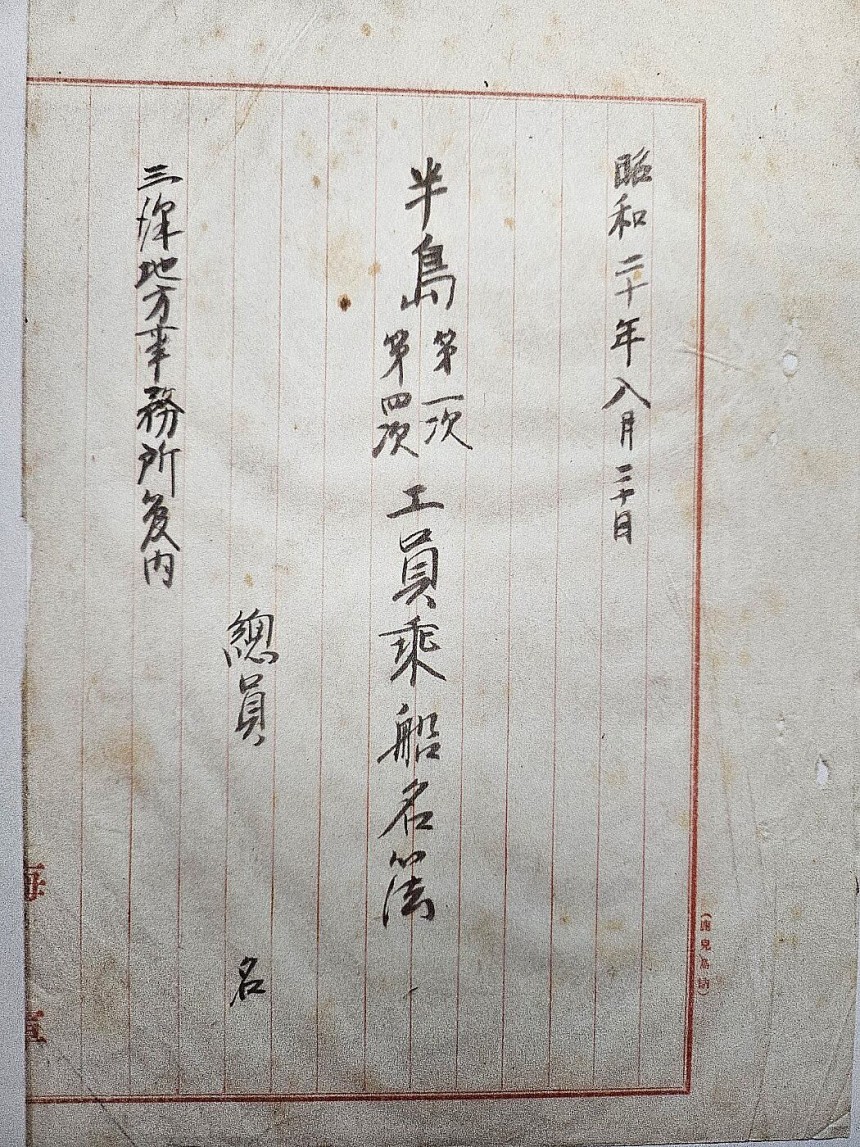 (鹿兒島納)
昭和二十年八月二十日
半島 第一次 第四次 工員乗船名簿
總員 名
三澤地方事務所 内
海軍